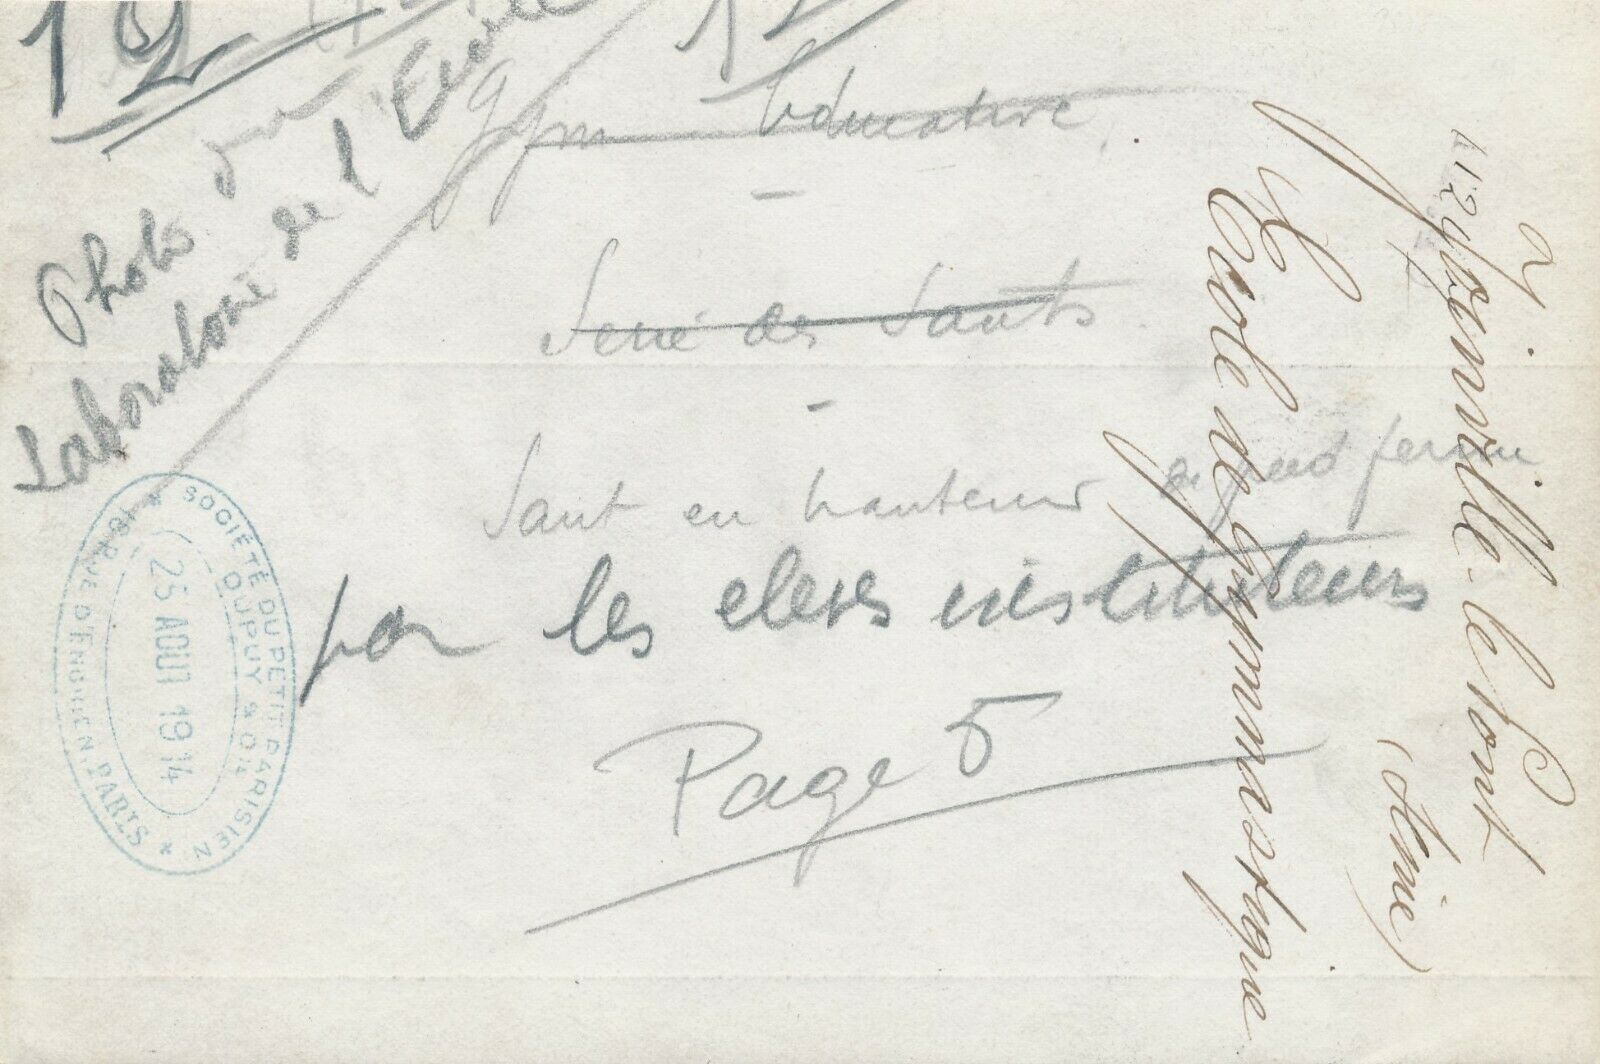 12
12
Photo du
Laboratoire de l'Ecole
Gym Educative
-
Serie des Sauts
-
Saut en hauteur de pied ferme
par les eleves instituteurs
Page 5
Joinville-le-Pont
(Seine)
Ecole de gymnastique
SOCIÉTÉ DU PETIT PARISIEN
DUPUY * C
18 RUE D'ENGHIEN, PARIS
25 AOUT 1914